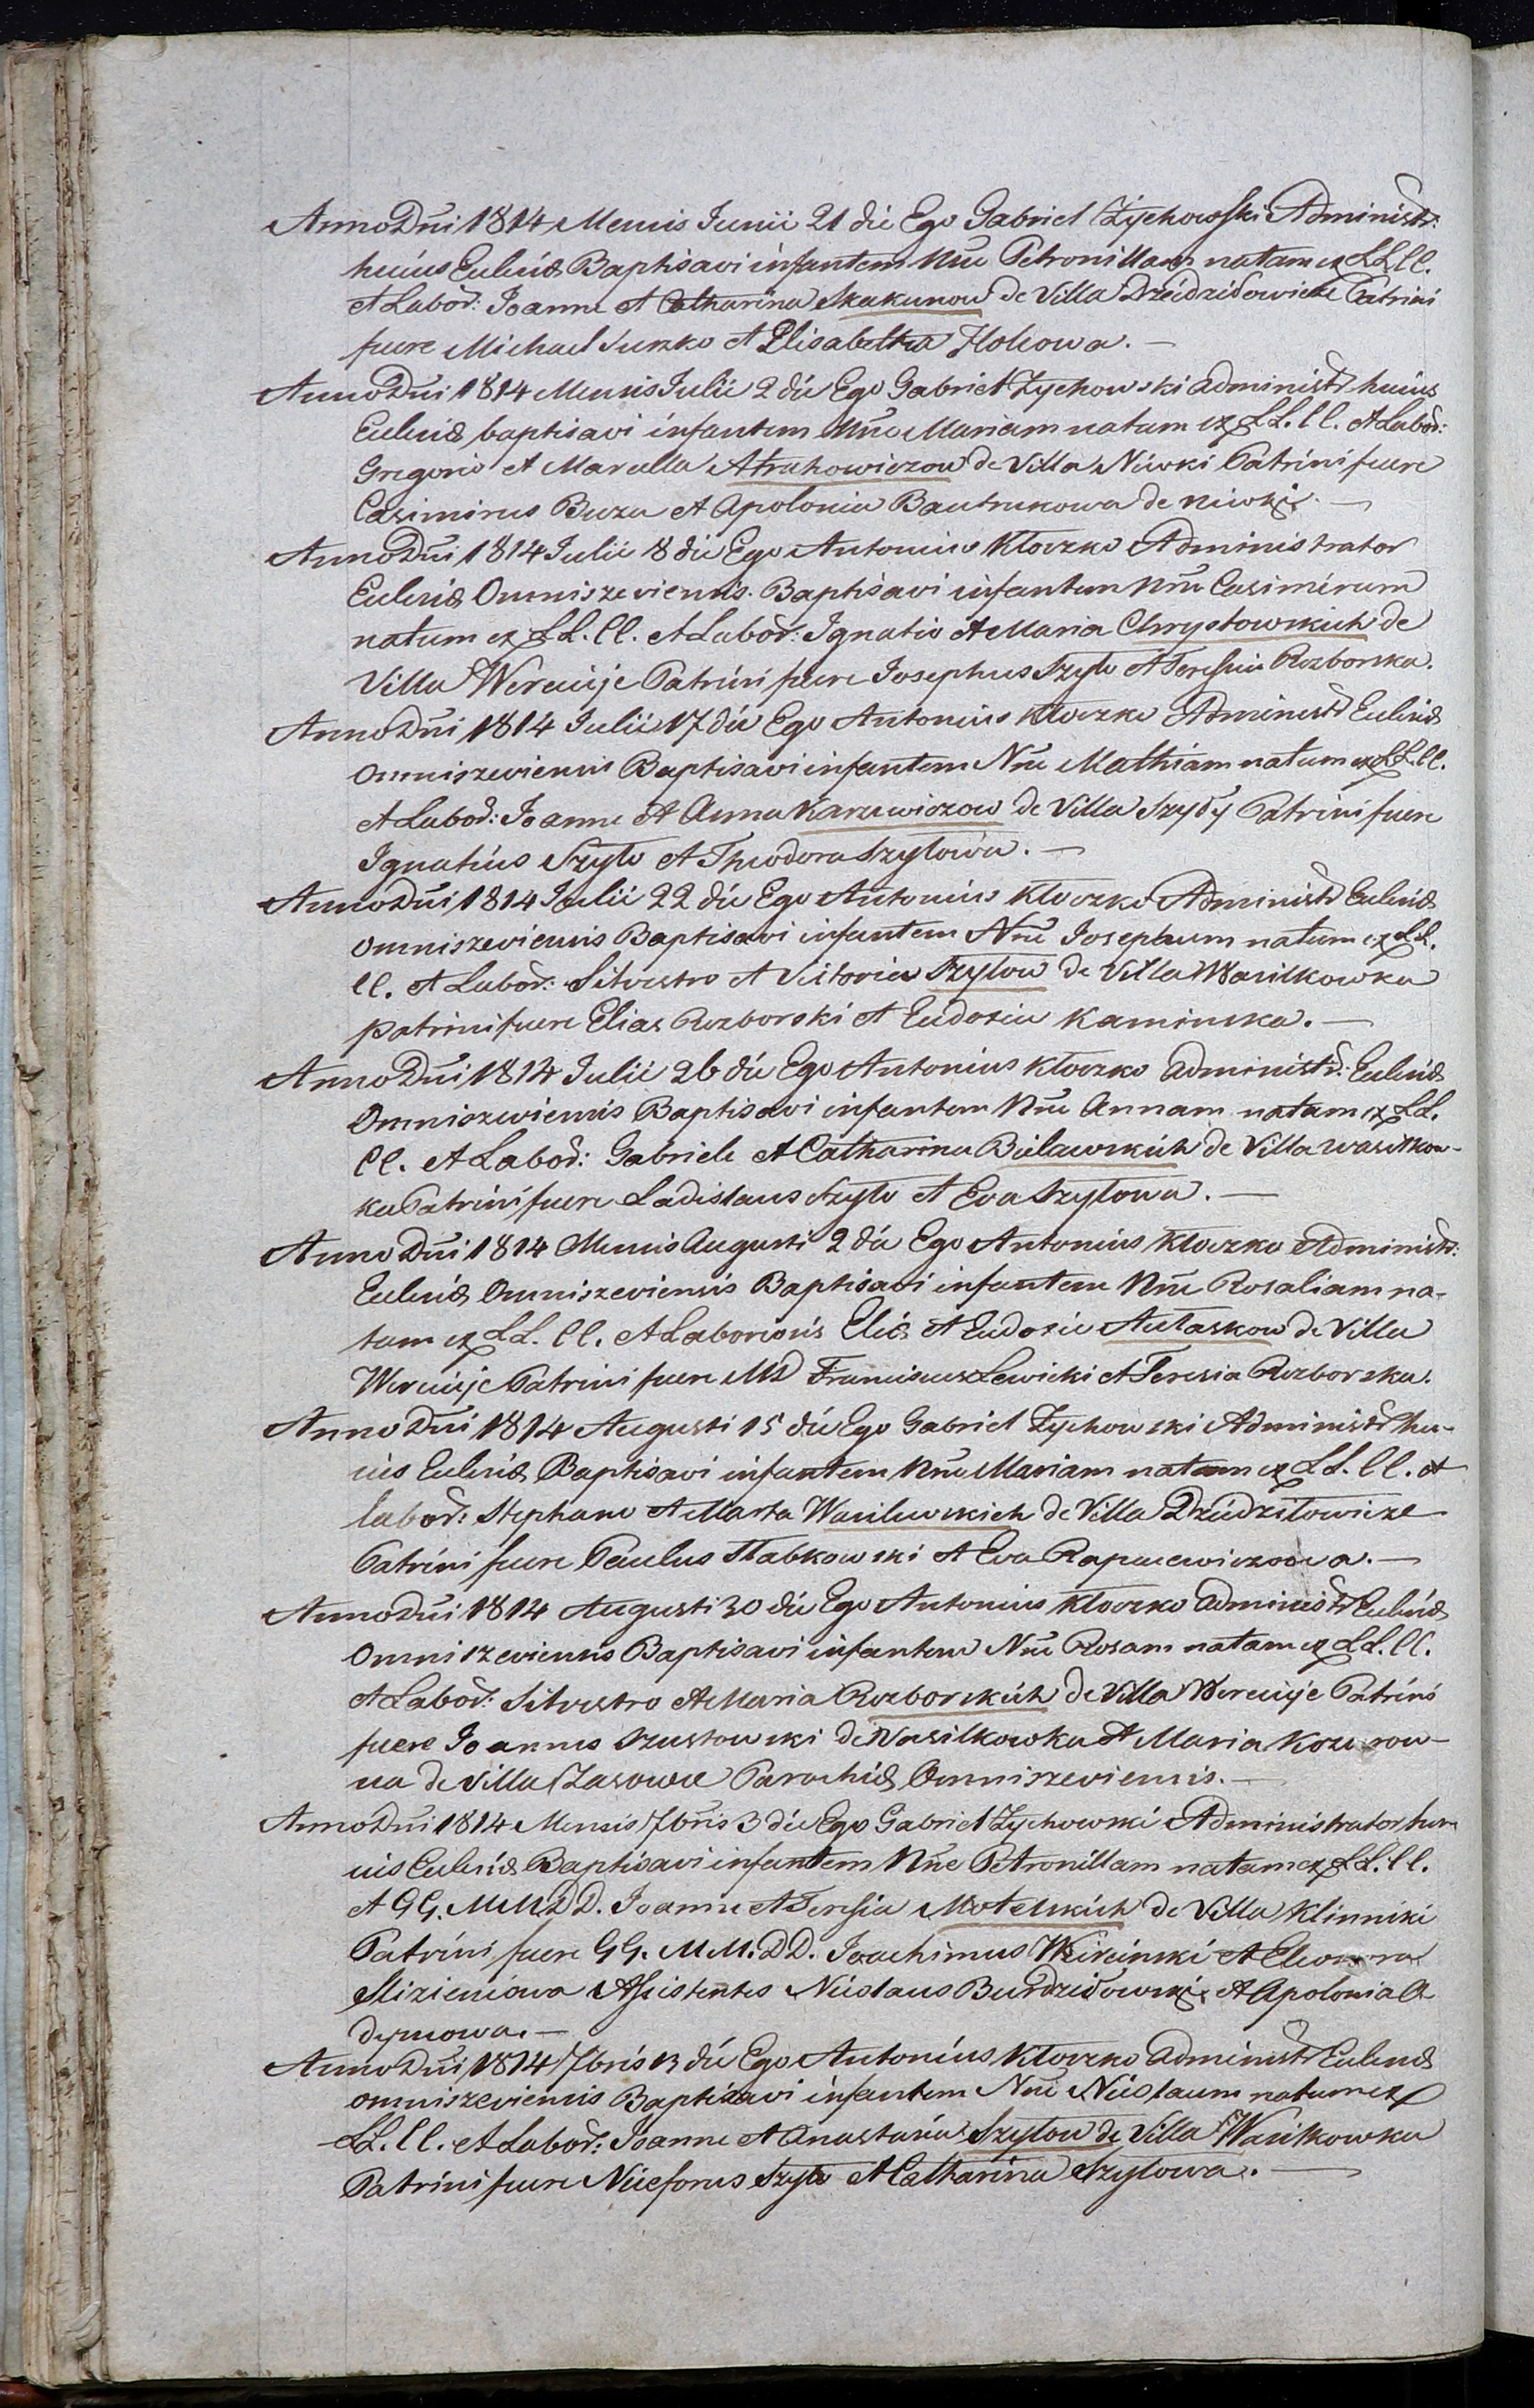 Anno Dñi 1814 Mensis Junii 21 die Ego Gabriel Zychowski Administr:
huius Ecclesiæ Baptisavi infantem Nñe Petronillam natam ex LL. ll.
et Labor: Joanne et Catharina Skakunow de Villa Dziedzilowicze Patrini
fuere Michael Suszko et Elisabetha
Anno Dñi 1814 Mensis Julii 2 die Ego Gabriel Zychowski administr huius
Ecclesiæ baptisavi infantem Nñe Mariam natam ex LL. ll. et Labor:
Gregorio et Marcella Atrachowiczow de Villa Niwki Patrini fuere
Casimirus Buza et Apolonia Bautrukowa de Niwki. —
Anno Dñi 1814 Julii 8 die Ego Antonius Kloczko Administrator
Ecclesiæ Omniszeviensis Baptisavi infantem Nñe Casimirum
natum ex LL. ll. et Labor: Ignatio et Maria Chrystowskich de
Villa Wereicije Patrini fuere Josephus Szyło et Teressia Rozborska.
Anno Dñi 1814 Julii 17 die Ego Antonius Kloczko Administr Ecclesiæ
Omniszeviensis Baptisavi infantem Nñe Mathiam natum ex LL. ll.
et Labor: Joanne et Anna Karzewiczow de Villa Szyły Patrini fuere
Ignatius Szyło et Theodora Szyłowa. —
Anno Dñi 1814 Julii 22 die Ego Antonius Kloczko Administr Ecclesiæ
omniszeviensis Baptisavi infantem Nñe Josephum natum ex LL.
ll. et Labor: Silvestro et Victoria Szyłow de Villa Wasilkowka
patrini fuere Elias Rozborski et Eudoxia Kaminska. —
Anno Dñi 1814 Julii 26 die Ego Antonius Kloczko administr: Ecclesiæ
Omniszeviensis Baptisavi infantem Nñe Annam natam ex LL.
ll. et Labor: Gabriele et Catharina Bielawskich de Villa Wasilkow-
ka Patrini fuere Ladislaus Szyło et Eva Szyłowa. —
Anno Dñi 1814 Mensis Augusti 2 die Ego Antonius Kloczko Administr:
Ecclesiæ Omniszeviensis Baptisavi infantem Nñe Rosaliam na-
tam ex LL. ll. et Laboriosis Eliæ et Eudoxia Autaskow de Villa
Wereicije Patrini fuere MD Franciscus Lewicki et Teresia Rozborska.
Anno Dñi 1814 Augusti 15 die Ego Gabriel Zychowski Administr hu-
ius Ecclesiæ Baptisavi infantem Nñe Mariam natam ex LL. ll. et
labor: Stephano et Marta Wasilewskich de Villa Dziedziłowicze
Patrini fuere Paulus Słabkowski et Eva Rapacewiczowa. —
Anno Dñi 1814 Augusti 30 die Ego Antonius Kloczko administr Ecclesiæ
Omniszeviensis Baptisavi infantem Nñe Rosam natam ex LL. ll.
et Labor: Silvestro et Maria Rozborskich de Villa Wereicije Patrini
fuere Joannes Szustowski de Wasilkowka et Maria
na de Villa Zasowie Parochiæ Omniszeviensis. —
Anno Dñi 1814 Mensis 7bris 3 die Ego Gabriel Zychowski Administrator hu-
ius Ecclesiæ Baptisavi infantem Nñe Petronillam natam ex LL. ll.
et GG. MM DD. Joanne et Teressia Motelskich de Villa Klinniki
Patrini fuere GG. MM. DD. Joachimus Wierciński et
Mizieniowa Assistentes Niceslaus Burdziłowski et Apolonia A-
dymowa. —
Anno Dñi 1814 7bris 13 die Ego Antonius Kloczko administr Ecclesiæ
omniszeviensis Baptisavi infantem Nñe Niceslaum natum ex
LL. ll. et Labor: Joanne et Anastasia Szyłow de Villa Wasilkowka
Patrini fuere Niceforus Szyło et Catharina Szyłowa. —